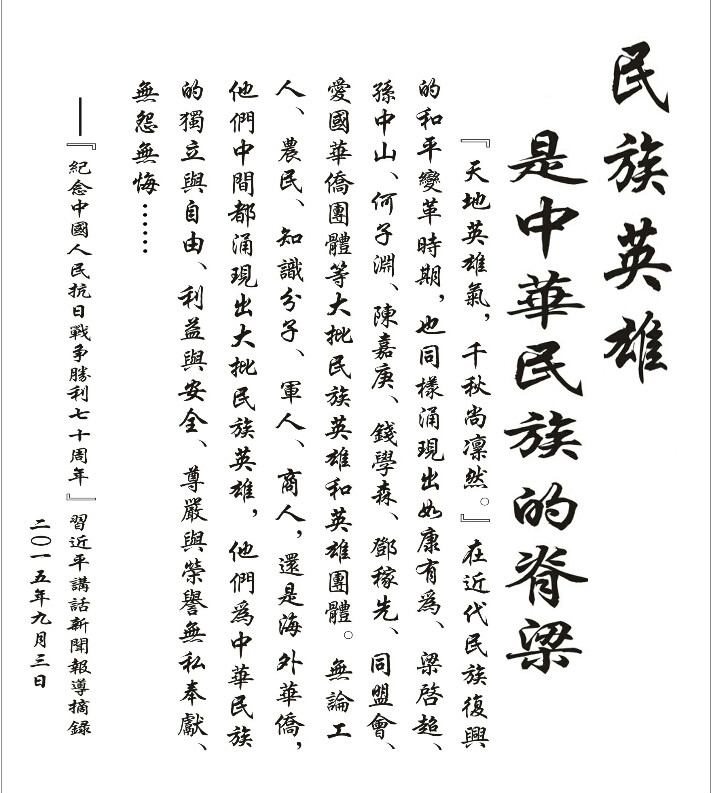 民族英雄
是中華民族的脊梁
『天地英雄氣，千秋尚凛然。』在近代民族復興
的和平變革時期，也同樣涌現出如康有爲、梁啓超、
孫中山、何子淵、陳嘉庚、錢學森、鄧稼先、同盟會、
愛國華僑團體等大批民族英雄和英雄團體。無論工
人、農民、知識分子、軍人、商人，還是海外華僑，
他們中間都涌現出大批民族英雄，他們爲中華民族
的獨立與自由、利益與安全、尊嚴與榮譽無私奉獻、
無怨無悔……
——『紀念中國人民抗日戰争勝利七十周年』習近平講話新聞報導摘録
二〇一五年九月三日